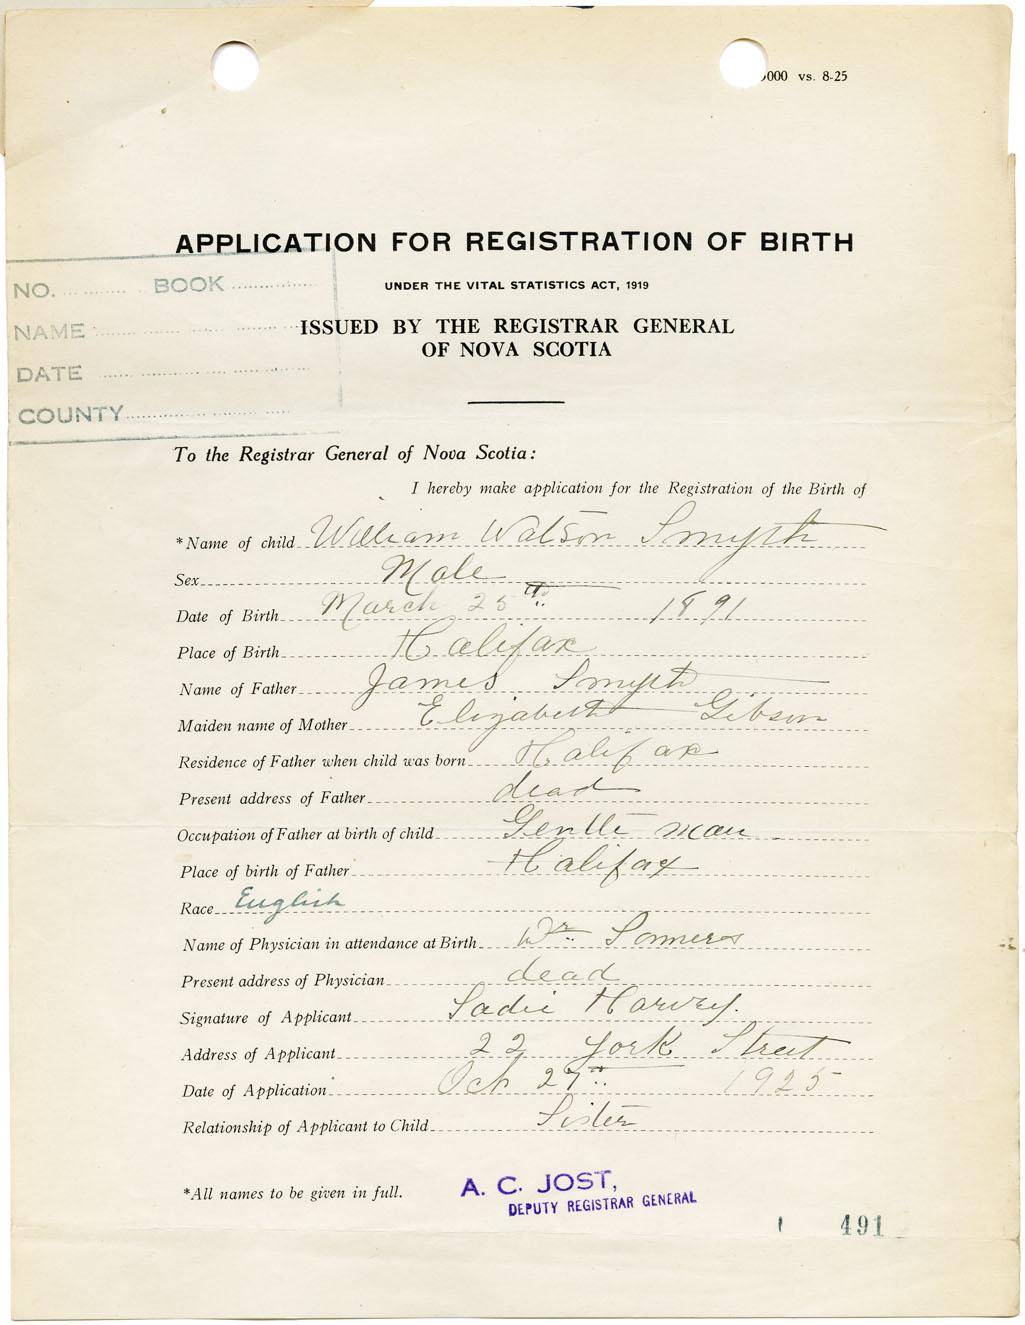 000 vs. 8-25
APPLICATION FOR REGISTRATION OF BIRTH
UNDER THE VITAL STATISTICS ACT, 1919
ISSUED BY THE REGISTRAR GENERAL
OF NOVA SCOTIA
NO. BOOK
NAME
DATE
COUNTY
To the Registrar General of Nova Scotia:
I hereby make application for the Registration of the Birth of
*Name of child William Watson Smyth
Sex Male
Date of Birth March 25th 1891
Place of Birth Halifax
Name of Father James Smyth
Maiden name of Mother Elizabeth Gibson
Residence of Father when child was born Halifax
Present address of Father dead
Occupation of Father at birth of child Gentle man
Place of birth of Father Halifax
Race English
Name of Physician in attendance at Birth Dr. Somers
Present address of Physician dead
Signature of Applicant Sadie Harvey.
Address of Applicant 22 York Street
Date of Application Oct 27th 1925
Relationship of Applicant to Child Sister
*All names to be given in full.
A. C. JOST,
DEPUTY REGISTRAR GENERAL
491